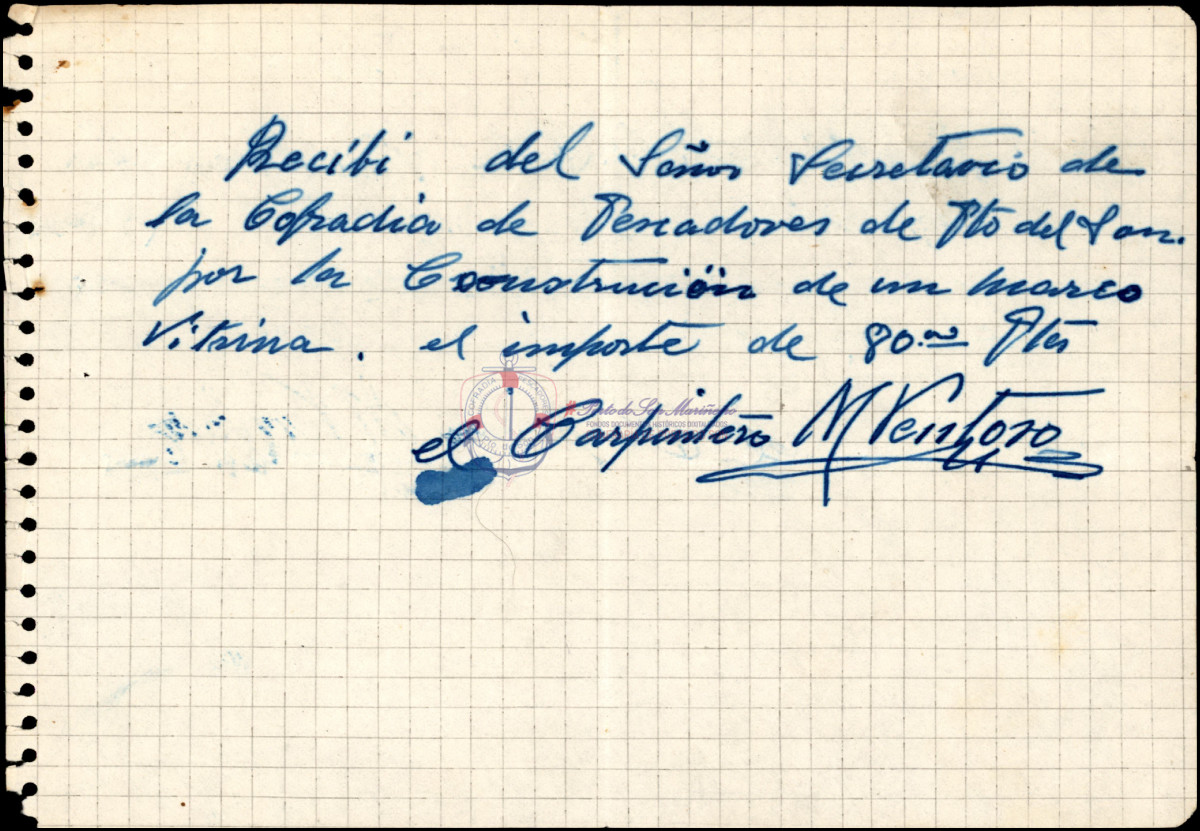 Recibi del Señor Secretario de
la Cofradia de Pescadores de Pto del Son.
por la Construción de un marco
Vitrina. el importe de 80.00 Ptas
el Carpintero M Ventoso
Porto do Son Mariñeiro